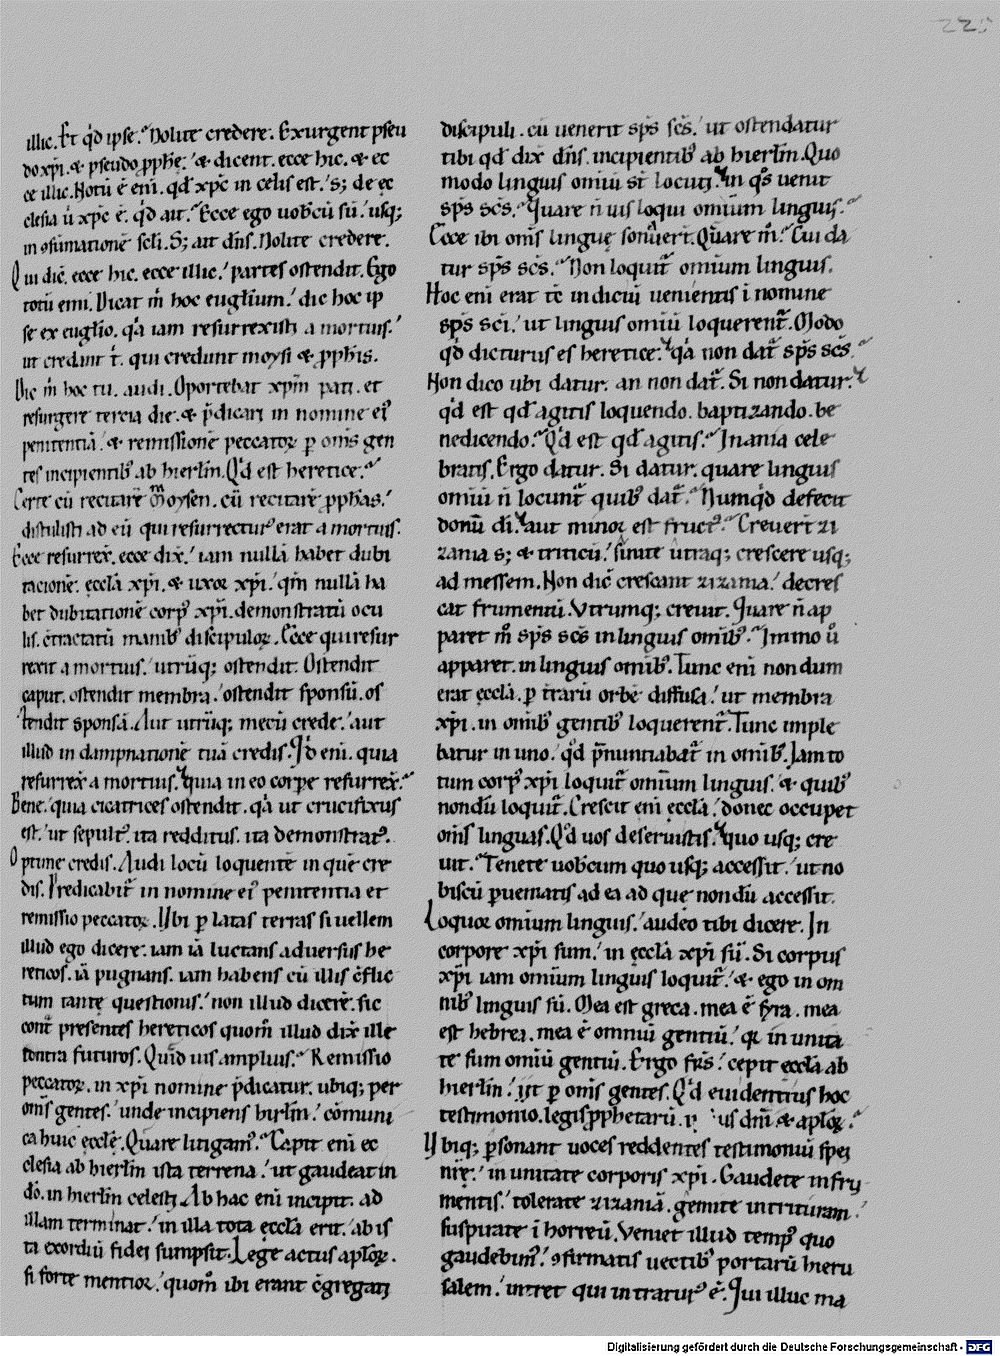 225
illic. Et qd̓ ipse. Nolite credere. Exurgent pseu
do xp̄i. & pseudo ꝓphę. & dicent. ecce hic. & ec
ce illic. Notū ē eni. qđ xp̄c in celis est. s; de ec
clesia ū xp̄c ē. qd̓ ait. Ecce ego uobcū sū. usq;
in ꝯsūmationē scli. S; ait dn̄s. Nolite credere.
Qui dic̄. ecce hic. ecce illic. partes ostendit. Ego
totū emi. Dicat m̄ hoc euglium. dic hoc ip
se ex euglio. qa iam resurrexisti a mortuis.
ut credant t̄. qui credunt moysi & ꝓphis.
Dic m̄ hoc tu. audi. Oportebat xp̄m pati. et
resurgere tercia die. & p̄dicari in nomine eiꝰ
penitentiā. & remissionē peccatoꝝ ꝑ om̄s gen
tes incipientibꝰ ab hierlm̄. Qd̓ est heretice.
Certe cū recitarē Moysen. cū recitarē ꝓphas.
distulisti ad eū qui resurrecturꝰ erat a mortuis.
Ecce resurrex̄. ecce dix̄. iam nullā habet dubi
tacionē. eccla xp̄i. & uxor xp̄i. qm̄ nullā ha
bet dubitationē corpꝰ xp̄i. demonstratū ocu
lis. ꝯtractatū manibꝰ discipuloꝝ. Ecce qui resur
rexit a mortuis. utrūq; ostendit. Ostendit
caput. ostendit membra. ostendit sponsū. os
tendit sponsā. Aut utrūq; mecū crede. aut
illud in dampnationē tuā credis. Id̓ eni. quia
resurrex̄ a mortuis. quia in eo corpe resurrex̄.
Bene. quia cicatrices ostendit. qa ut crucifixus
est. ut sepultꝰ. ita redditus. ita demonstratꝰ.
Optime credis. Audi locū loquentē in quē cre
dis. Predicabit̄ in nomine eiꝰ penitentia et
remissio peccatoꝝ. Ubi ꝑ latas terras si uellem
illud ego dicere. iam iā luctans aduersus he
reticos. iā pugnans. iam habens cū illis ꝯflic
tum tantę questionis. non illud dicerē. sic
cont̄ presentes hereticos quom̄ illud dix̄ ille
contra futuros. Quid uis amplius. Remissio
peccatoꝝ. in xp̄i nomine p̄dicatur. ubiq; per
om̄s gentes. unde incipiens hirlm̄. cōmuni
ca huic ecclę. Quare litigamꝰ. Cepit eni ec
clesia ab hierlm̄ ista terrena. ut gaudeat in
dō. in hierlm̄ celesti. Ab hac eni incipit. ad
illam terminat̄. in illa tota eccla erit. ab is
ta exordiū fidei sumpsit. Lege actus aploꝝ.
si forte mentior. quom̄ ibi erant ꝯgregati
discipuli. cū uenerit sp̄s sc̄s. ut ostendatur
tibi qđ dix̄ dn̄s. incipientibꝰ ab hierlm̄. Quo
modo linguis omiū st̄ locuti. in qͦs uenit
sp̄s sc̄s. Quare n̄ uis loqui omium linguis.
Ecce ibi om̄s linguę sonuer̄t. Quare m̄. Cui da
tur sp̄s sc̄s. Non loquit̄ omium linguis.
Hoc eni erat tc̄ indiciū uenientis ī nomine
sp̄s sc̄i. ut linguis omiū loquerent̄. Modo
qd̓ dicturus es heretice. qa non dat̄ sp̄s sc̄s.
Non dico ubi datur. an non dat̄. Si non datur.
qd̓ est qđ agitis loquendo. baptizando. be
nedicendo. Qd̓ est qđ agitis. Inania cele
bratis. Ergo datur. Si datur. quare linguis
omiū n̄ locunt̄ quibꝰ dat̄. Numqd̓ defecit
donū di. aut minor est fructꝰ. Creuer̄t zi
zania s; & triticū. sinite utraq; crescere usq;
ad messem. Non dic̄ crescant zizania. decres
cat frumentū. Utrumq; creuit. Quare n̄ ap
paret m̊ sp̄s sc̄s in linguis omibꝰ. Immo ů
apparet. in linguis omibꝰ. Tunc eni nondum
erat eccla. ꝑ tr̄arū orbē diffusa. ut membra
xp̄i. in omibꝰ gentibꝰ loquerent̄. Tunc imple
batur in uno. qd̓ p̄nuntiabat̄ in omibꝰ. Iam to
tum corpꝰ xp̄i loquit̄ omium linguis. & quibꝰ
nondū loquit̄. Crescit eni eccla. donec occupet
om̄s linguas. Qd̓ uos deseruistis. quo usq; cre
uit. Tenete uobcum quo usq; accessit. ut no
biscū ꝑueniatis ad ea ad que nondū accessit.
Loquor omium linguis. audeo tibi dicere. In
corpore xp̄i sum. in eccla xp̄i sū. Si corpus
xp̄i iam omium linguis loquit̄. & ego in om
nibꝰ linguis sū. Mea est greca. mea ē syra. mea
est hebrea. mea ē omniū gentiū. qa in unita
te sum omiū gentiū. Ergo frs̄. cepit eccla ab
hierlm̄. it ꝑ om̄s gentes. Qd̓ euidentius hoc
testimonio. legis ꝓphetarū. dn̄i & aploꝝ.
Ubiq; ꝑsonant uoces reddentes testimoniū spei
nr̄ę. in unitate corporis xp̄i. Gaudete in fru
mentis. tolerate zizaniā. gemite in trituram.
suspirate ī horreū. Veniet illud tempꝰ quo
gaudebimꝰ. ꝯfirmatis uectibꝰ portarū hieru
salem. intret qui intraturꝰ ē. Qui illuc ma
Digitalisierung gefördert durch die Deutsche Forschungsgemeinschaft - DFG